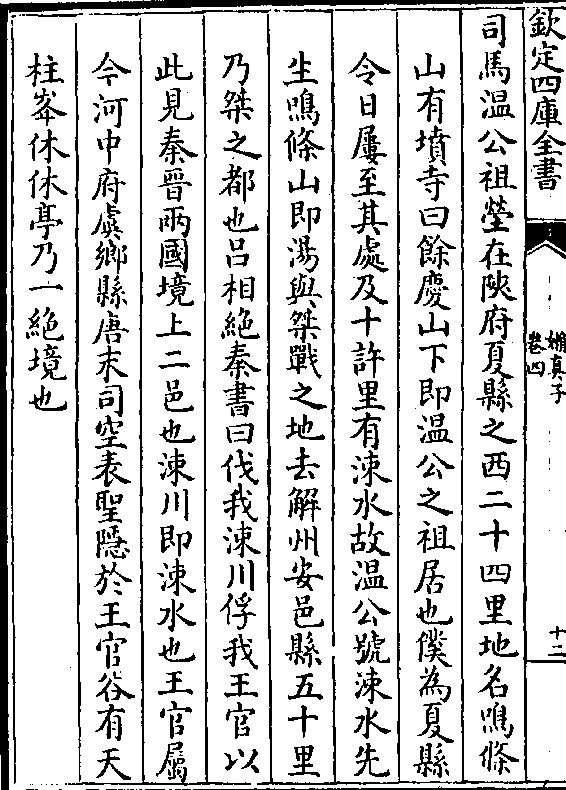 欽定四庫全書
嬾真子
卷四
十二
司馬溫公祖塋在陜府夏縣之西二十四里地名鳴條
山有墳寺曰餘慶山下即溫公之祖居也僕為夏縣
令日屢至其處及十許里有涑水故溫公號涑水先
生鳴條山即湯與桀戰之地去解州安邑縣五十里
乃桀之都也呂相絶秦書曰伐我涑川俘我王官以
此見秦晉兩國境上二邑也涑川即涑水也王官屬
今河中府虞鄉縣唐末司空表聖隱於王官谷有天
柱峯休休亭乃一絶境也